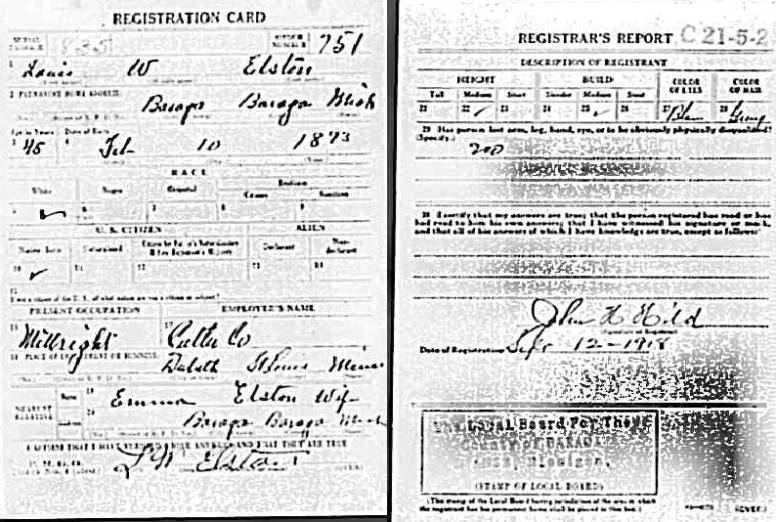 REGISTRATION CARD
SERIAL NUMBER 835 ORDER NUMBER 751
1 Louis W Elston
2 PERMANENT HOME ADDRESS
Baraga Baraga Mich
Age in Years Date of Birth
3 45 4 Feb 10 1873
RACE
White Negro Oriental Indian
Citizen Noncitizen
5 ✓ 6 7 8 9
U. S. CITIZEN ALIEN
Native Born Naturalized Citizen by Father's Naturalization Declarant Non-declarant
10 ✓ 11 12 13 14
15
PRESENT OCCUPATION EMPLOYER'S NAME
16 Millright 17 Cutler Co
18 PLACE OF EMPLOYMENT OR BUSINESS
Duluth St Louis Minn
NEAREST RELATIVE
Name 19 Emma Elston Wife
Address 20 Baraga Baraga Mich
I AFFIRM THAT I HAVE VERIFIED ABOVE ANSWERS AND THAT THEY ARE TRUE
L W Elston
REGISTRAR'S REPORT C 21-5-2
DESCRIPTION OF REGISTRANT
HEIGHT BUILD COLOR OF EYES COLOR OF HAIR
Tall Medium Short Slender Medium Stout
21 22 ✓ 23 24 25 ✓ 26 27 Blue 28 Gray
29 Has person lost arm, leg, hand, eye, or is he obviously physically disqualified?
(Specify.) no
30 I certify that my answers are true; that the person registered has read or has
had read to him his own answers; that I have witnessed his signature or mark,
and that all of his answers of which I have knowledge are true, except as follows:
John H Hild
Signature of Registrar
Date of Registration Sep 12-1918
The Local Board For The
County of BARAGA
Michigan.
(STAMP OF LOCAL BOARD)
(The stamp of the Local Board having jurisdiction of the area in which
the registrant has his permanent home shall be placed in this box.)
(OVER)